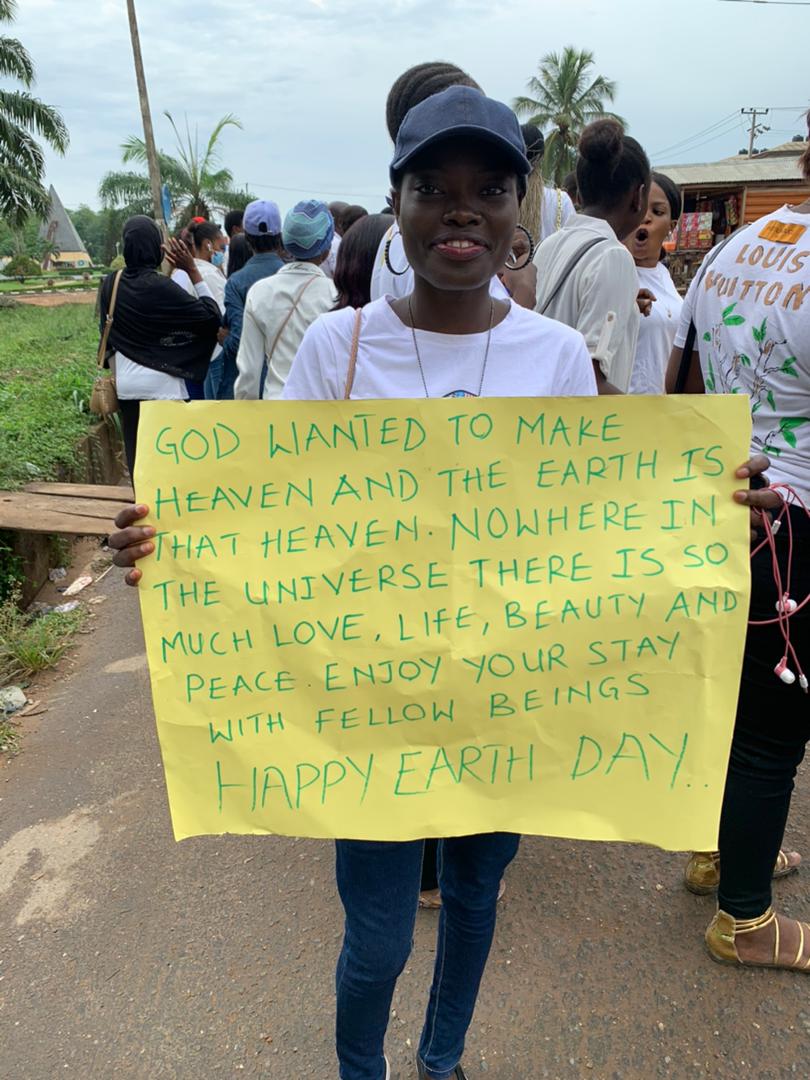 GOD WANTED TO MAKE
HEAVEN AND THE EARTH IS
THAT HEAVEN. NOWHERE IN
THE UNIVERSE THERE IS SO
MUCH LOVE, LIFE, BEAUTY AND
PEACE. ENJOY YOUR STAY
WITH FELLOW BEINGS
HAPPY EARTH DAY..
LOUIS
VUITTON